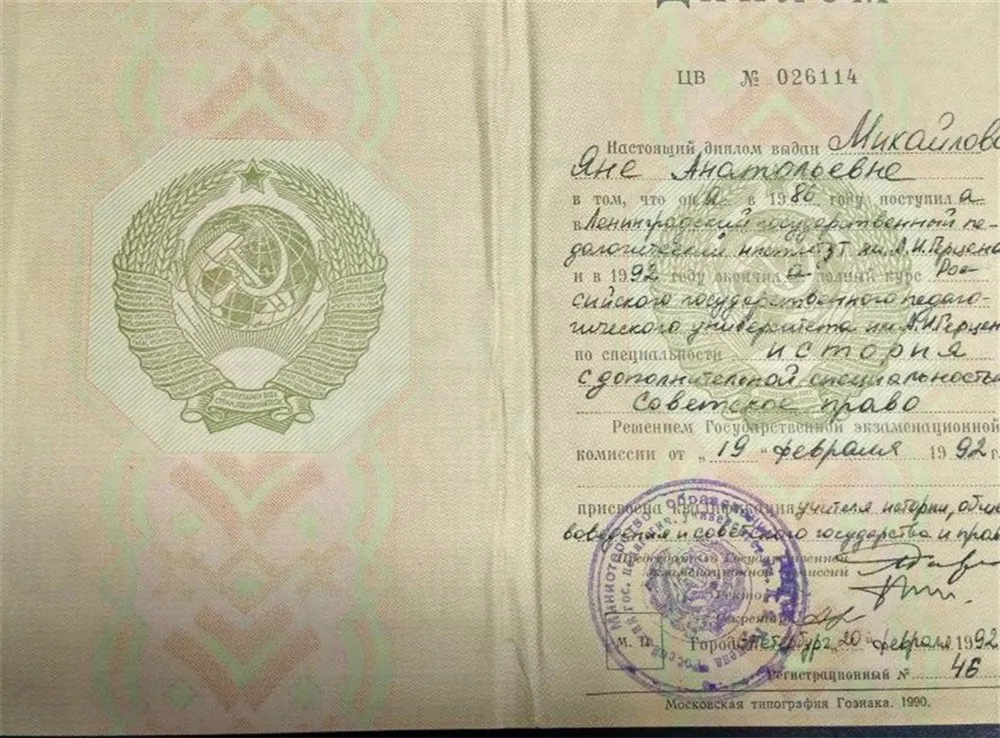 ДИПЛОМ
ЦВ № 026114
Настоящий диплом выдан Михайлово
Яне Анатольевне
в том, что он а в 1986 году поступила
в Ленинградский государственный пе-
дагогический институт им. А.И.Герцена
и в 1992 году окончила полный курс Рос-
сийского государственного педаго-
гического университета им. А.И.Герцен
по специальности история
с дополнительной специальностью
Советское право
Решением Государственной экзаменационной
комиссии от „19“ февраля 1992 г.
присвоена квалификация учителя истории, обще
воведения и советского государства и прав
Председатель Государственной
экзаменационной комиссии
Ректор
Секретарь
М. П. Город С-Петербург „20“ февраля 1992
Регистрационный № 46
Московская типография Гознака. 1990.